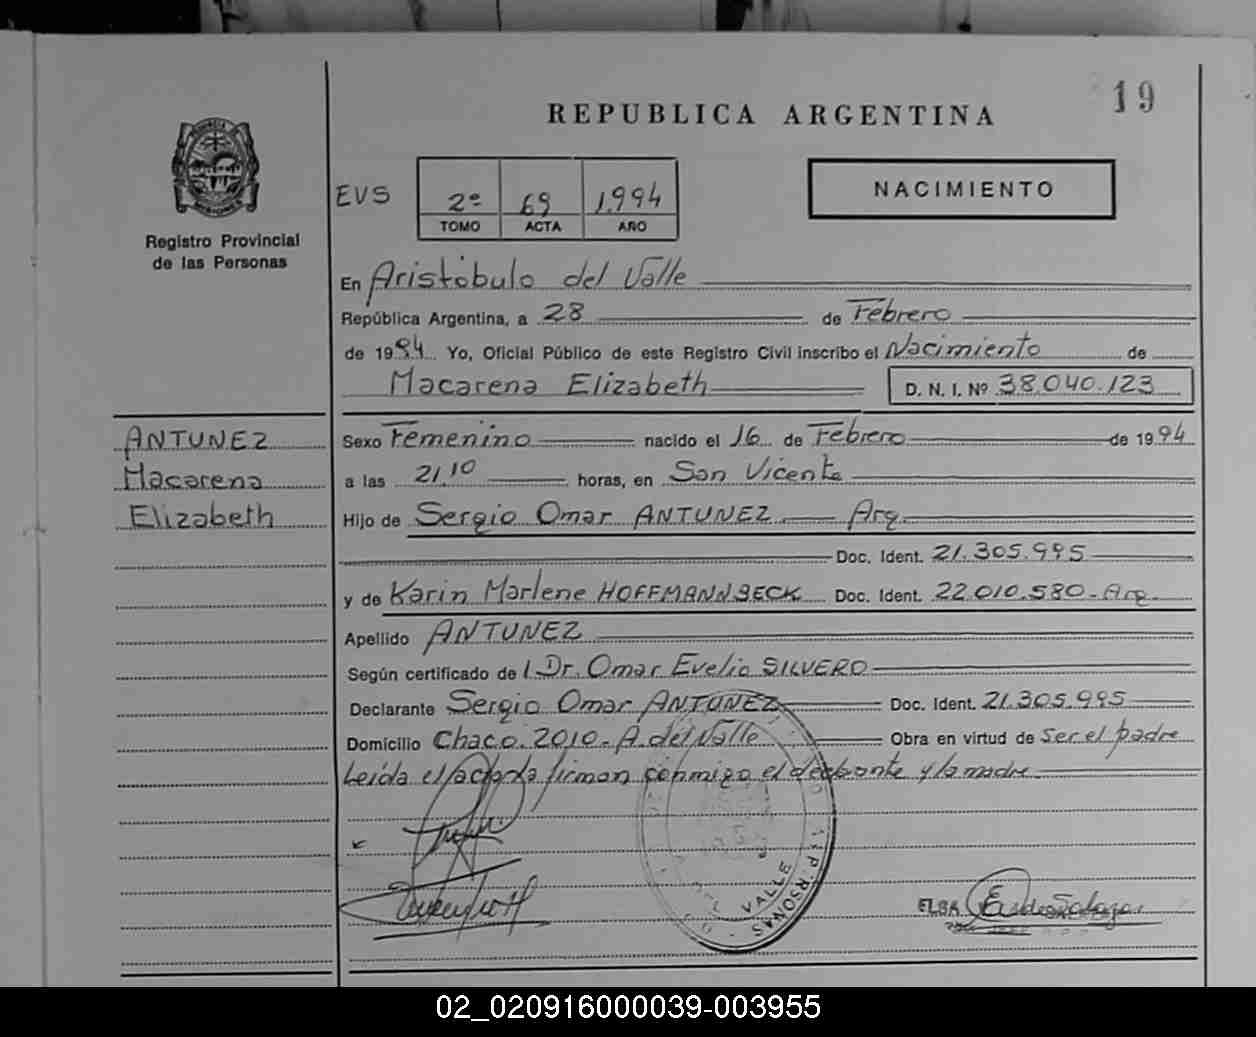 19
REPUBLICA ARGENTINA
NACIMIENTO
EVS
2º 69 1.994
TOMO ACTA AÑO
Registro Provincial
de las Personas
En Aristóbulo del Valle
República Argentina, a 28 de Febrero
de 1994 Yo, Oficial Público de este Registro Civil inscribo el Nacimiento de
Macarena Elizabeth D. N. I. Nº 38.040.123
ANTUNEZ
Macarena
Elizabeth
Sexo Femenino nacido el 16 de Febrero de 1994
a las 21,10 horas, en San Vicente
Hijo de Sergio Omar ANTUNEZ Arg.
Doc. Ident. 21.305.995
y de Karin Marlene HOFFMANNBECK Doc. Ident. 22.010.580-Arg.
Apellido ANTUNEZ
Según certificado de l Dr. Omar Evelio SILVERO
Declarante Sergio Omar ANTUNEZ Doc. Ident. 21.305.995
Domicilio Chaco. 2010- A. del Valle Obra en virtud de Ser el padre
Leída el acta la firman conmigo el declarante y la madre.
VALLE
ELSA
02_020916000039-003955